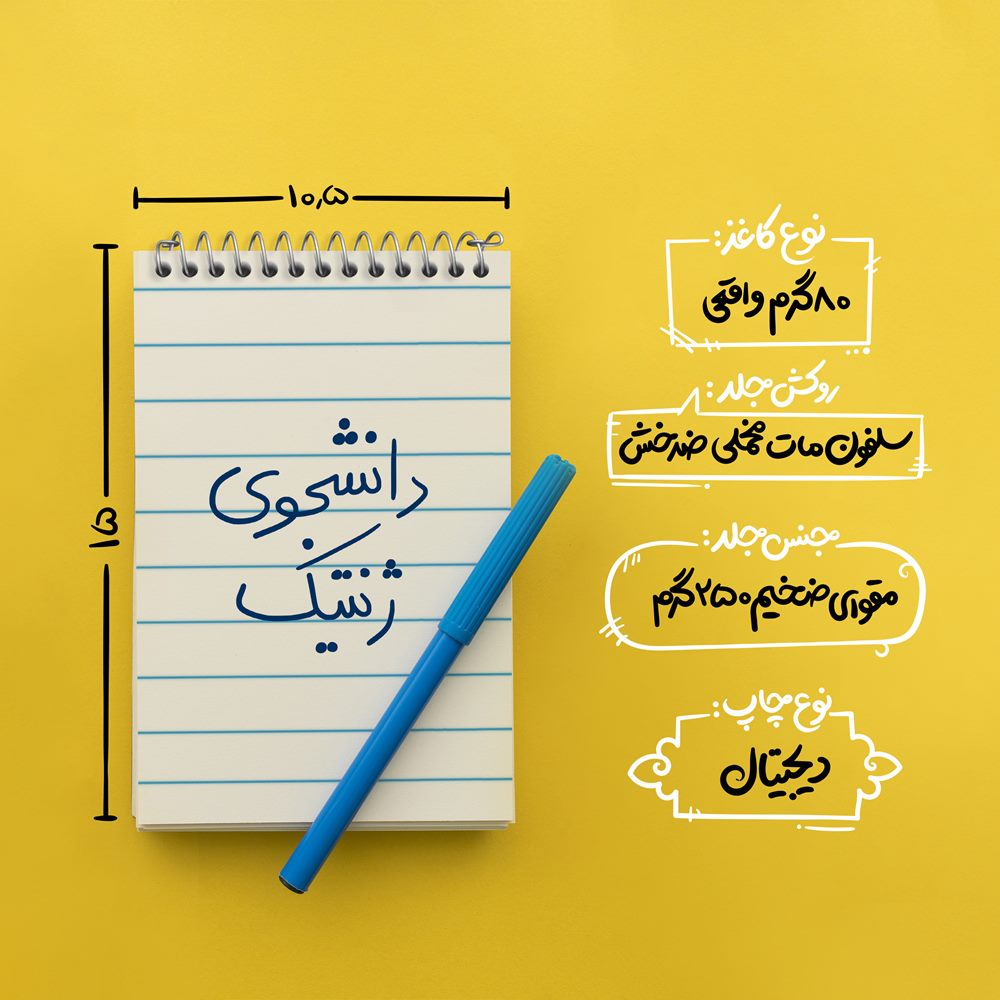 ۱۰٫۵
۱۵
دانشجوی
ژنتیک
نوع کاغذ:
۸۰گرم واقعی
روکش جلد:
سلفون مات مخملی ضدخش
جنس جلد:
مقوای ضخیم ۲۵۰گرم
نوع چاپ:
دیجیتال